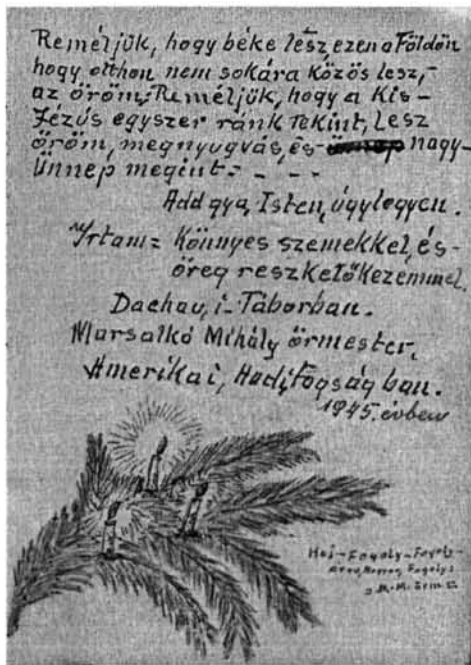 Reméljük, hogy béke lész ezen a Földön
hogy otthon nem sokára közös lesz,-
az öröm, Reméljük, hogy a Kis-
Jézus egyszer ránk tekint, Lesz
öröm, megnyugvás, és nagy-
Ünnep megint.- - - -
Add gya, Isten, úgylegyen.
Irtam= Könnyes szemekkel, és-
öreg reszketőkezemmel.
Dachau, i-Táborban.
Marsalkó Mihály örmester,
Amerikai, Hadifogságban.
1945. évben
Hej-Fogoly-Fogoly-
Fogoly,
M.M.